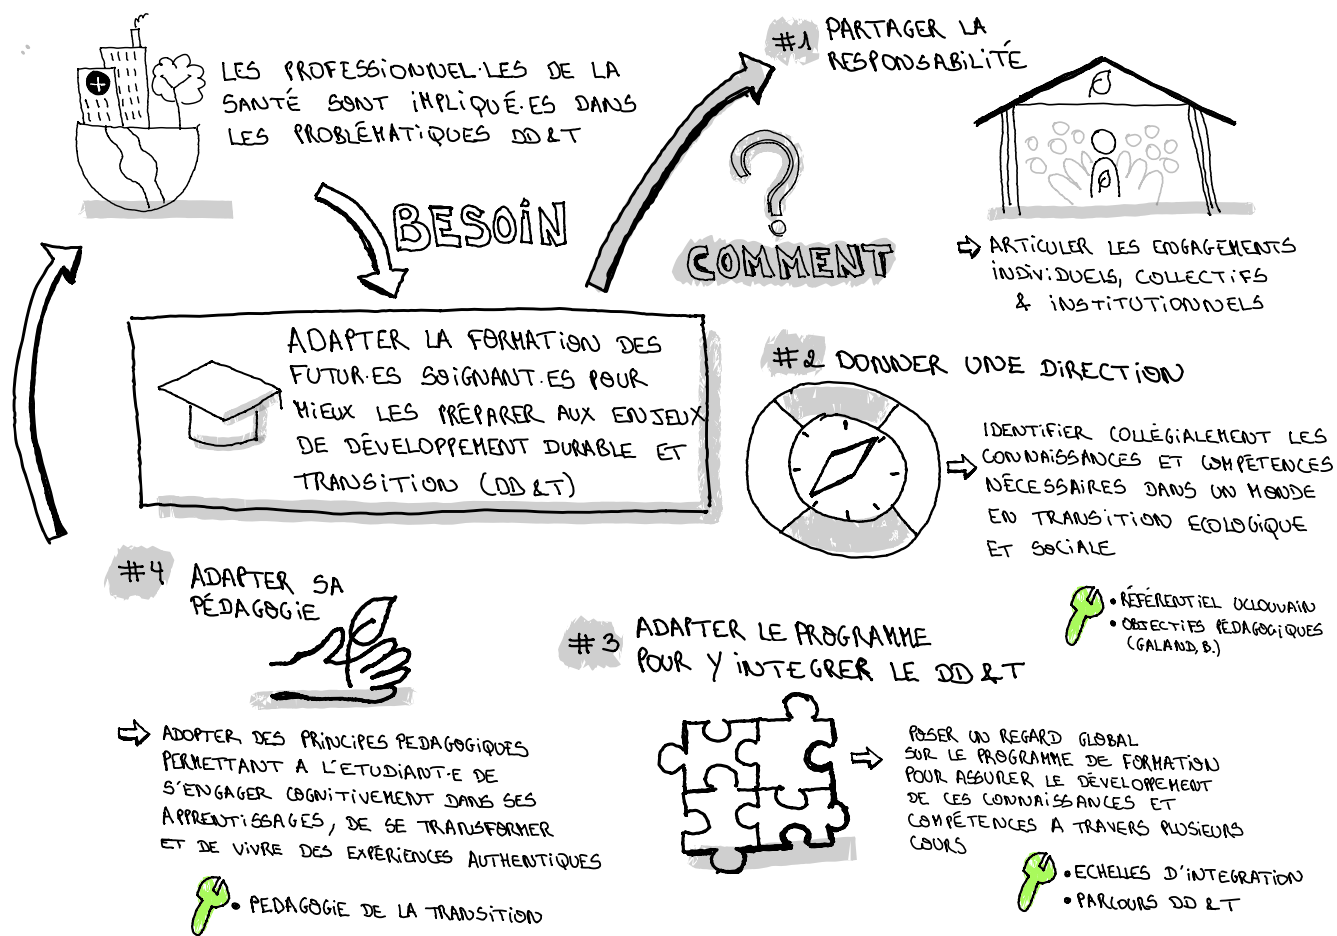 LES PROFESSIONNEL·LES DE LA
SANTÉ SONT IMPLIQUÉ·ES DANS
LES PROBLÉMATIQUES DD&T
BESOIN
ADAPTER LA FORMATION DES
FUTUR·ES SOIGNANT·ES POUR
MIEUX LES PRÉPARER AUX ENJEUX
DE DÉVELOPPEMENT DURABLE ET
TRANSITION (DD&T)
?
COMMENT
#1 PARTAGER LA
RESPONSABILITÉ
ARTICULER LES ENGAGEMENTS
INDIVIDUELS, COLLECTIFS
& INSTITUTIONNELS
#2 DONNER UNE DIRECTION
IDENTIFIER COLLÉGIALEMENT LES
CONNAISSANCES ET COMPÉTENCES
NÉCESSAIRES DANS UN MONDE
EN TRANSITION ECOLOGIQUE
ET SOCIALE
• RÉFÉRENTIEL UCLOUVAIN
• OBJECTIFS PÉDAGOGIQUES
(GALAND, B.)
#3 ADAPTER LE PROGRAMME
POUR Y INTEGRER LE DD&T
POSER UN REGARD GLOBAL
SUR LE PROGRAMME DE FORMATION
POUR ASSURER LE DÉVELOPPEMENT
DE CES CONNAISSANCES ET
COMPÉTENCES A TRAVERS PLUSIEURS
COURS
• ECHELLES D'INTEGRATION
• PARCOURS DD&T
#4 ADAPTER SA
PÉDAGOGIE
ADOPTER DES PRINCIPES PEDAGOGIQUES
PERMETTANT A L'ETUDIANT·E DE
S'ENGAGER COGNITIVEMENT DANS SES
APPRENTISSAGES, DE SE TRANSFORMER
ET DE VIVRE DES EXPÉRIENCES AUTHENTIQUES
• PEDAGOGIE DE LA TRANSITION